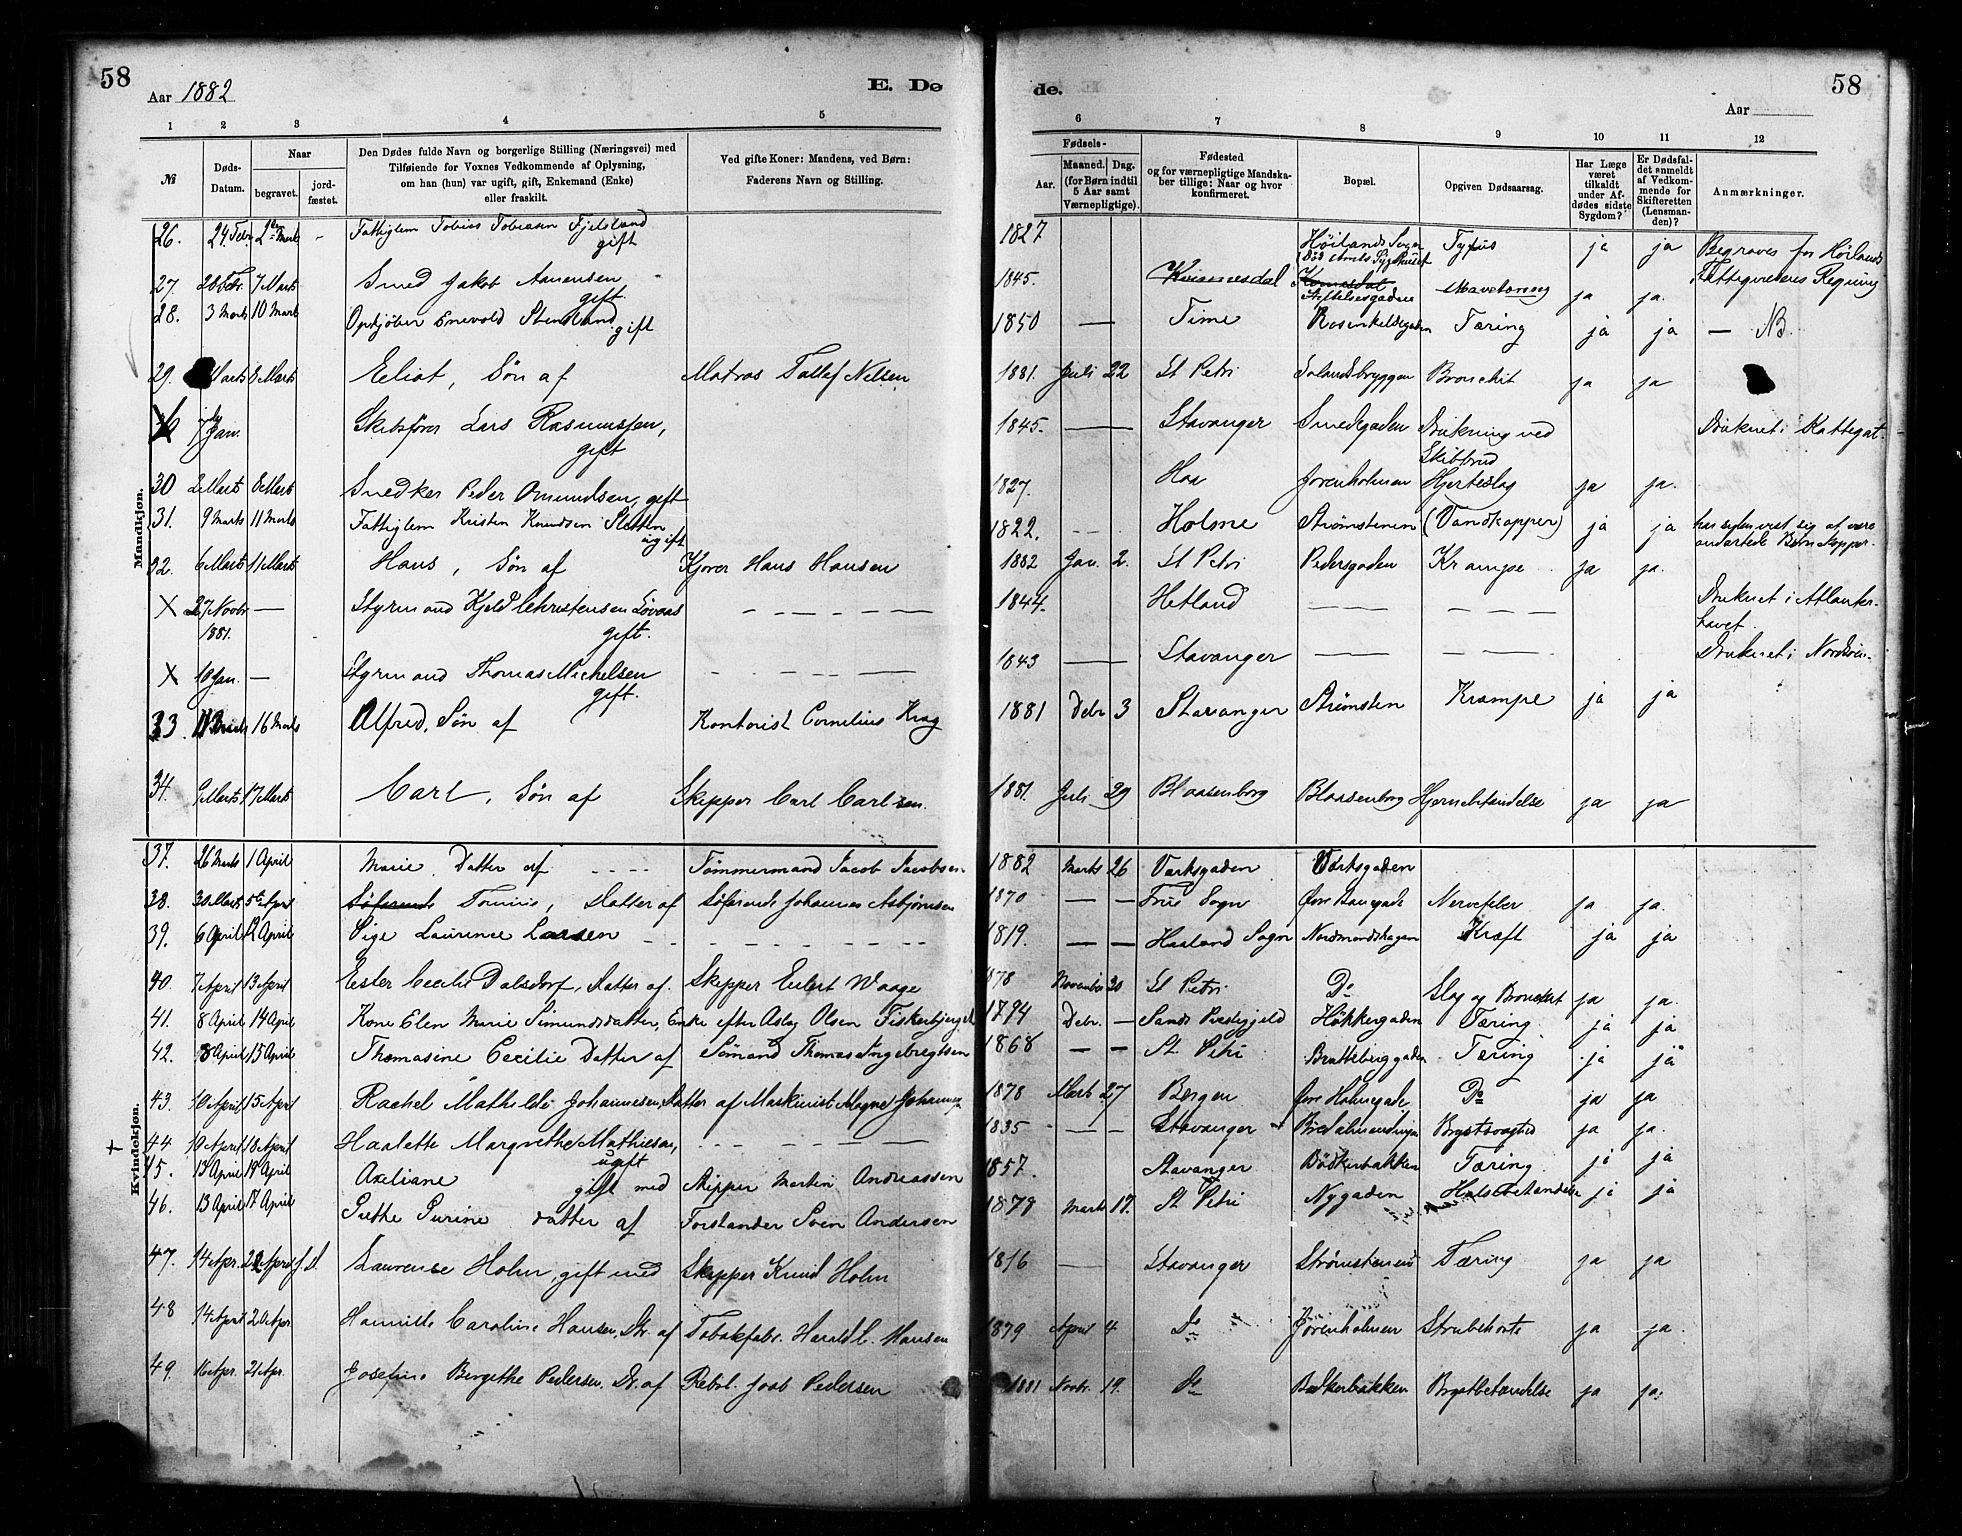 58
Aar 1882
E. Dø
de.
Aar
58
1 2 3 4 5 6 7 8 9 10 11 12
№
Døds-Datum.
Naar
begravet.
jord-fæstet.
Den Dødes fulde Navn og borgerlige Stilling (Næringsvei) med
Tilføiende for Voxnes Vedkommende af Oplysning,
om han (hun) var ugift, gift, Enkemand (Enke)
eller fraskilt.
Ved gifte Koner: Mandens, ved Børn:
Faderens Navn og Stilling.
Fødsels-
Aar.
Maaned. Dag.
(for Børn indtil
5 Aar samt
Værnepligtige).
Fødested
og for værnepligtige Mandska-
ber tillige: Naar og hvor
konfirmeret.
Bopæl.
Opgiven Dødsaarsag.
Har Læge
været
tilkaldt
under Af-
dødes sidste
Sygdom?
Er Dødsfal-
det anmeldt
af Vedkom-
mende for
Skifteretten
(Lensman-
den)?
Anmærkninger.
Mandkjøn.
26. 24 Febr. 2den Marts - Fattiglem Tobias Tobiasen Fjelsland gift 1827 Høilands Sogn Tyfus ja ja Begraves for Høilands
Fattigvæsens Regning
27. 28 Febr. 7 Marts Smed Jakob Aanensen gift 1845. Kvinnesdal Stiftelsesgaden ja ja.
28. 3 Marts 10 Marts Opkjøber Enevold Stensland gift 1850 — Time Rosenkildegaden Tæring ja ja — NB.
29. Marts 8 Marts Eliot, Søn af Matros Tollef Nelsen 1881. Juli 22 St Petri Solandsbryggen Bronchit ja ja
7 Jan. Skibsfører Lars Rasmussen, gift 1845. — Stavanger Smedgaden Drukning ved Skibbrud Druknet i Kattegat.
30 2 Marts 8 Marts Snedker Peder Omundsen, gift 1827. Haa Jorenholmen Hjerteslag ja ja.
31. 9 Marts 11 Marts Fattiglem Kristen Knudsen Sletten ugift 1822. - - Holme Strømstenen (Vandkopper) ja ja har sylen vist sig at være
andartede Børnekopper.
32. 6 Marts 11 Marts Hans, Søn af Kjører Hans Hansen 1882 Jan. 2. St Petri Pedersgaden Krampe ja ja.
X 27 Novbr 1881. — Styrmand Kjeld Christensen Løvaas gift. - - - - - 1844. Hetland — — — — Druknet i Atlanter-
havet.
X 10 Jan. — Styrmand Thomas Michelsen gift. - - - - - 1843 — Stavanger — — — — Druknet i Nordsøen.
33. Marts 16 Marts Alfred, Søn af Kontorist Cornelius Krag 1881 Debr 3 Stavanger Strømsten Krampe ja ja
34. 9 Marts 17 Marts Carl, Søn af Skipper Carl Carlsen. 1881. Juli 29 Blaasenborg Blaasenborg Hjernebetændelse ja ja
Kvindekjøn.
37. 26 Marts 1 April Marie Datter af - - - - Tømmermand Jacob Jacobsen. 1882 Marts 26 Værksgaden Værksgaden
38. 30 Marts 5te April Tomine, Datter af Søfarende Johannes Asbjørnsen 1870 — — Frue Sogn Øvre Banegade Nervefeber ja ja.
39. 6 April 12 April Sige Laurence Larsen - - - - - - 1819. — — Haaland Sogn Nordmandshagen Kræft ja ja
40. 7 April 13 April Ester Cecilie Dalsdorf, Datter af. Skipper Eilert Waage 1878 November 30 St Petri Do Slag og Bronchit ja ja.
41. 8 April 14 April Kone Elen Marie Simundsdatter, Enke efter Aslag Olsen Fiskerbjerget 1794 Debr. — Sands Præstegjeld Høkkergaden Tæring. ja ja
42. 8 April 15 April Thomasine Cecilie Datter af Sømand Thomas Ingebregtsen 1868 — — St. Petri Brattebergsgaden Tæring ja ja
43. 10 April 15 April Rachel Mathilde Johannesen, Datter af Maskinist Magne Johannesen 1878 Marts 27 Bergen Øvre Holmegade Do ja ja
+ 44 10 April 18 April Haalette Margrethe Mathiesen, ugift - - - - 1835 - — Stavanger Bredalmendingen Brystsvaghed ja ja.
45. 13 April 18 April Axeliane gift med Skipper Morten Andreassen 1857. Stavanger Bødkerbakken Tæring. ja ja
46. 13 April 17 April Grethe Serine datter af Forstander Sven Andersen 1878 Marts 17. St Petri Nygaden Halsbetændelse ja ja
47. 14 Apr. 22 April J. d. Laurense Holm, gift med Skipper Knud Holm 1816 — Stavanger Strømstenen Tæring ja ja
48 14 April 20 Apr. Caroline Hansen, Dr. af Tobakfabr. Harald C. Hansen 1879 April 4 Do Jorenholmen Strubehoste ja ja.
49. 16 Apr. 21 Apr. Josefine Bergithe Pedersen, Dr. af Rebsl. Joab Pedersen 1881 Novbr. 19. Do Bødkerbakken Brystbetændelse ja ja.